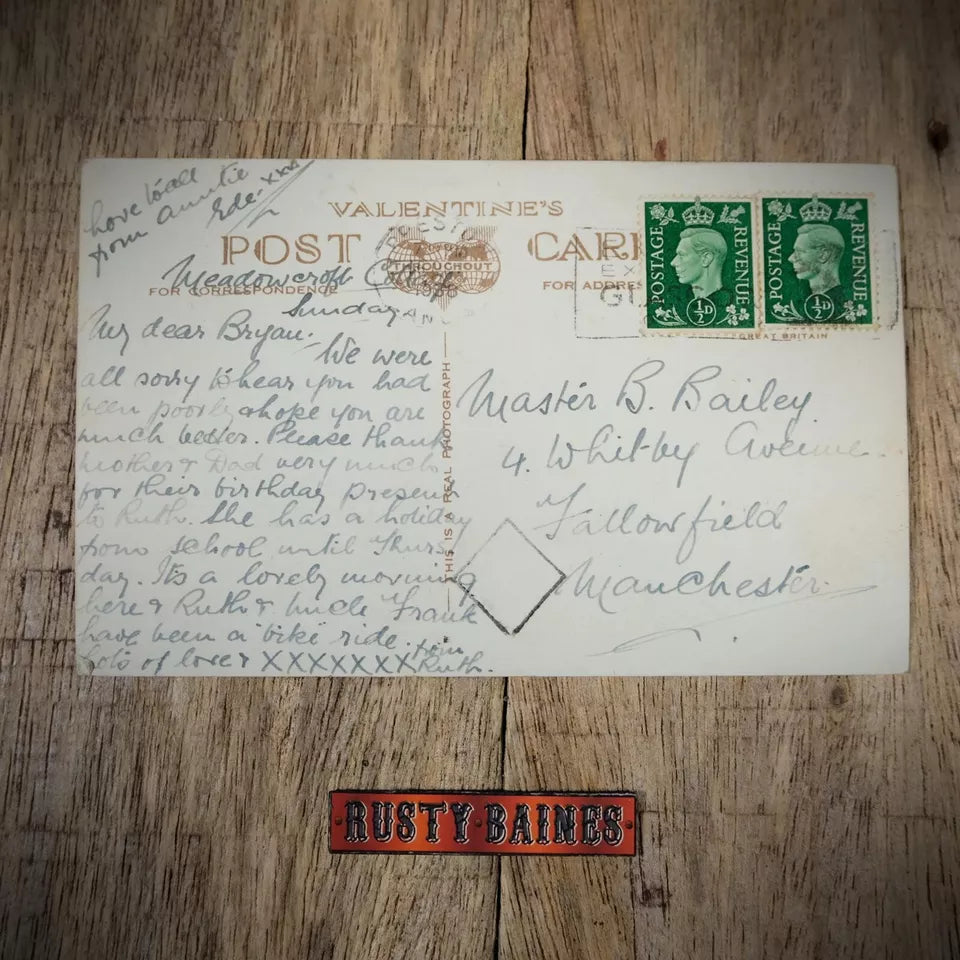 love to all
from auntie
Ede. xxx
VALENTINE'S
POST CARD
THROUGHOUT
FOR CORRESPONDENCE
FOR ADDRESS
Meadowcroft
Sunday
My dear Bryan.
We were
all sorry to hear you had
been poorly & hope you are
much better. Please thank
Mother & Dad very much
for their birthday present
to Ruth. She has a holiday
from school until Thurs
day. Its a lovely morning
here & Ruth & Uncle Frank
have been a "bike" ride.
Lots of love & XXXXXXX from
Ruth.
THIS IS A REAL PHOTOGRAPH
POSTAGE REVENUE
½D
POSTAGE REVENUE
½D
GREAT BRITAIN
Master B. Bailey
4. Whitby Avenue
Fallowfield
Manchester.
RUSTY·BAINES